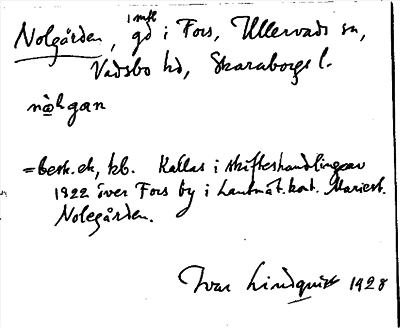 Nolgården, 1 mtl gd i Fors, Ullervads sn,
Vadsbo hd, Skaraborgs l.
nɷ̀ʰgan
= besk. ek, kb. Kallas i skifteshandlingar
1822 över Fors by i Lantmät.kont. Mariest.
Nolegården.
Ivar Lindquist 1928